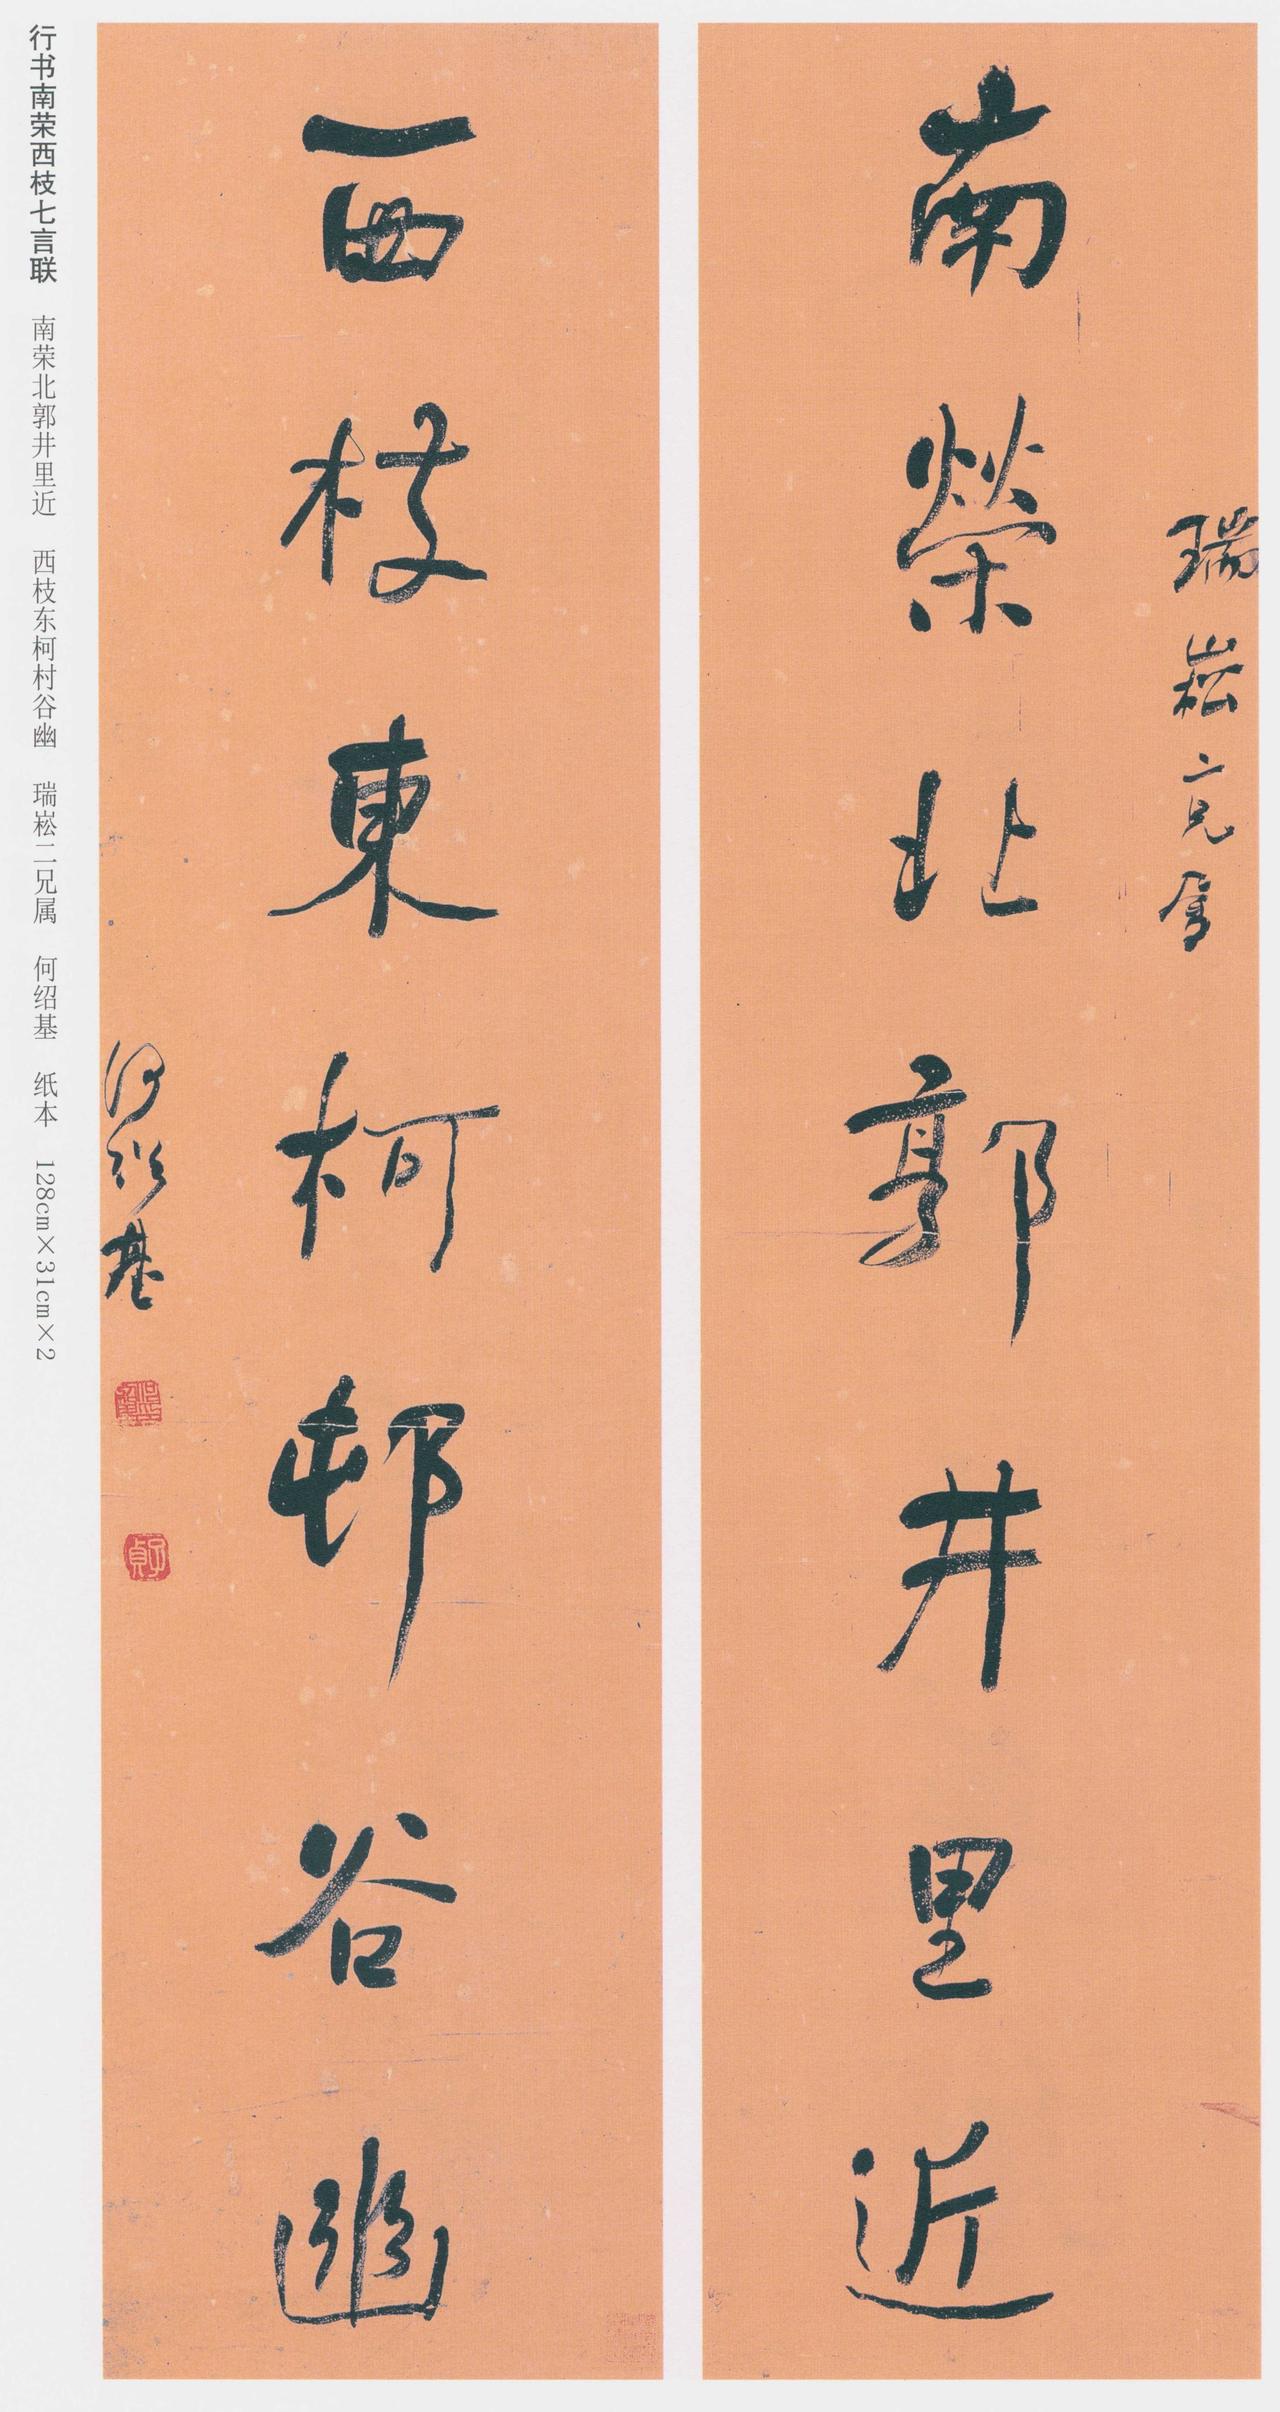 瑞崧二兄属
南榮北郭井里近
西枝東柯邨谷幽
何紹基
子貞
行书南荣西枝七言联 南荣北郭井里近 西枝东柯村谷幽 瑞崧二兄属 何绍基 纸本 128cm×31cm×2